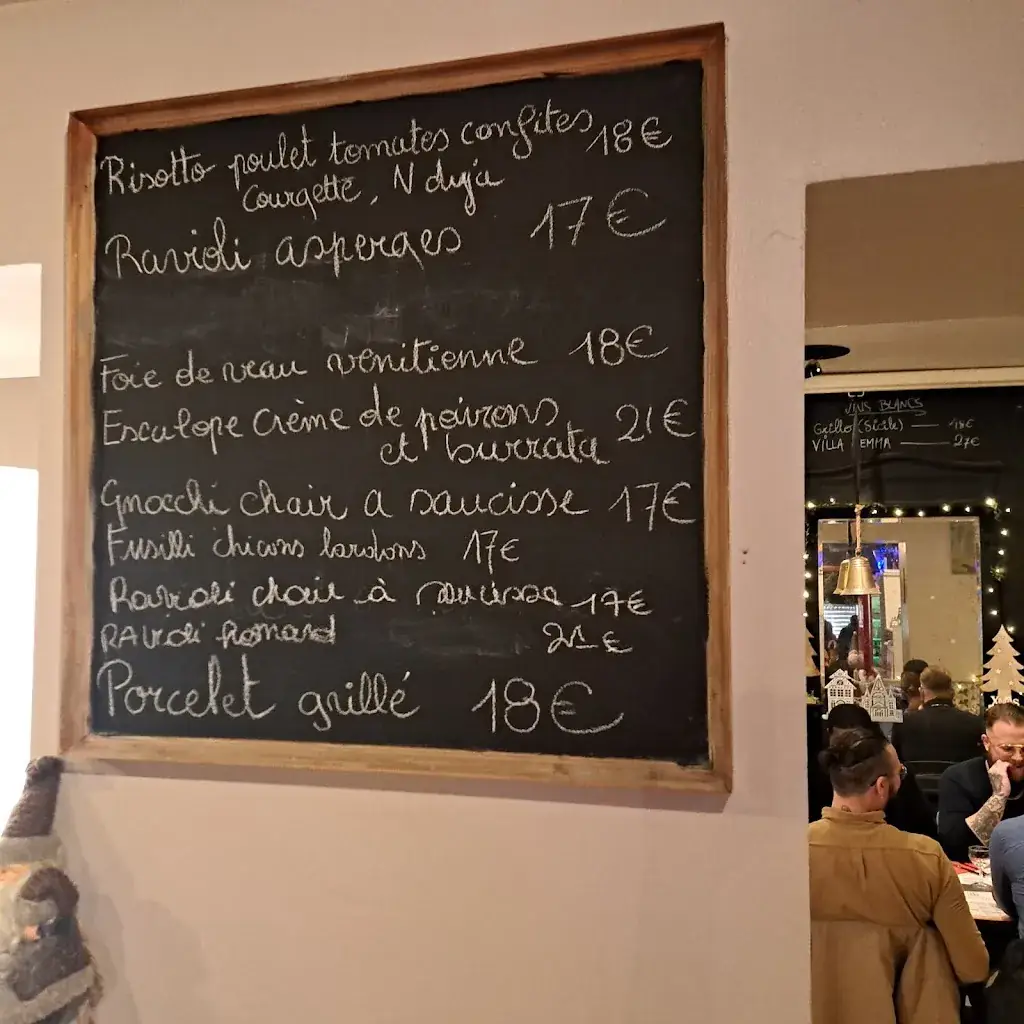 Risotto poulet tomates confites 18€
Courgette, N duja
Ravioli asperges 17€
Foie de veau vénitienne 18€
Escalope crème de poivrons 21€
et burrata
Gnocchi chair a saucisse 17€
Fusilli chicons lardons 17€
Ravioli chair à saucisse 17€
RAVIOLI Homard 21€
Porcelet grillé 18€
VINS BLANCS
Grillo (Sicile) — 18€
VILLA EMMA — 27€